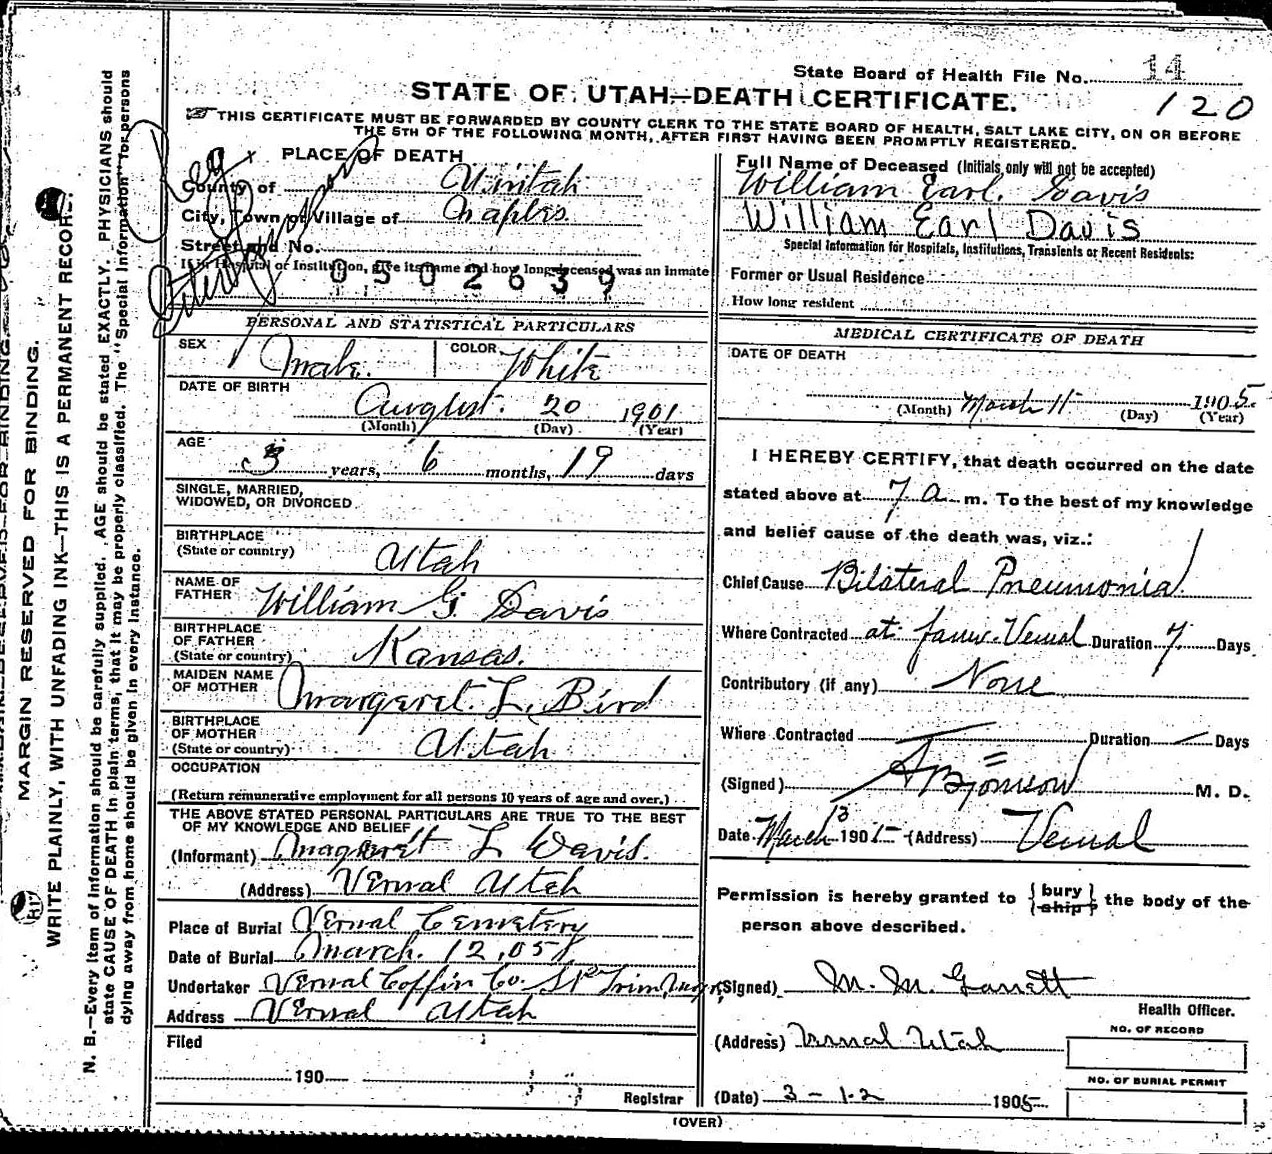 State Board of Health File No. 14
120
STATE OF UTAH—DEATH CERTIFICATE.
THIS CERTIFICATE MUST BE FORWARDED BY COUNTY CLERK TO THE STATE BOARD OF HEALTH, SALT LAKE CITY, ON OR BEFORE
THE 5TH OF THE FOLLOWING MONTH, AFTER FIRST HAVING BEEN PROMPTLY REGISTERED.
PLACE OF DEATH
County of Uintah
City, Town or Village of Naples
Street and No.
If in Hospital or Institution, give its name and how long deceased was an inmate
0502639
Full Name of Deceased (Initials only will not be accepted)
William Earl. Davis
William Earl Davis
Special Information for Hospitals, Institutions, Transients or Recent Residents:
Former or Usual Residence
How long resident
PERSONAL AND STATISTICAL PARTICULARS
SEX Male. COLOR White
DATE OF BIRTH
August. 20 1901
(Month) (Day) (Year)
AGE
3 years, 6 months, 19 days
SINGLE, MARRIED,
WIDOWED, OR DIVORCED
BIRTHPLACE
(State or country) Utah
NAME OF
FATHER William G. Davis
BIRTHPLACE
OF FATHER
(State or country) Kansas.
MAIDEN NAME
OF MOTHER Margaret. L. Bird
BIRTHPLACE
OF MOTHER
(State or country) Utah
OCCUPATION
(Return remunerative employment for all persons 10 years of age and over.)
THE ABOVE STATED PERSONAL PARTICULARS ARE TRUE TO THE BEST
OF MY KNOWLEDGE AND BELIEF
(Informant) Margaret L Davis.
(Address) Vernal Utah
Place of Burial Vernal Cemetery
Date of Burial March. 12, 05
Undertaker Vernal Coffin Co.
Address Vernal Utah
Filed
190
Registrar
MEDICAL CERTIFICATE OF DEATH
DATE OF DEATH
(Month) March 11 (Day) 1905 (Year)
I HEREBY CERTIFY, that death occurred on the date
stated above at 7 a m. To the best of my knowledge
and belief cause of the death was, viz.:
Chief Cause Bilateral Pneumonia
Where Contracted at Vernal Duration 7 Days
Contributory (if any) None
Where Contracted Duration Days
(Signed) M. D.
Date March 13 1905 (Address) Vernal
Permission is hereby granted to { bury ship } the body of the
person above described.
(Signed) M. M. Garrett
Health Officer.
(Address) Vernal Utah
NO. OF RECORD
NO. OF BURIAL PERMIT
(Date) 3-12 1905
(OVER)
MARGIN RESERVED FOR BINDING.
WRITE PLAINLY, WITH UNFADING INK—THIS IS A PERMANENT RECORD.
N. B.—Every item of information should be carefully supplied. AGE should be stated EXACTLY. PHYSICIANS should
state CAUSE OF DEATH in plain terms, that it may be properly classified. The "Special Information" for persons
dying away from home should be given in every instance.